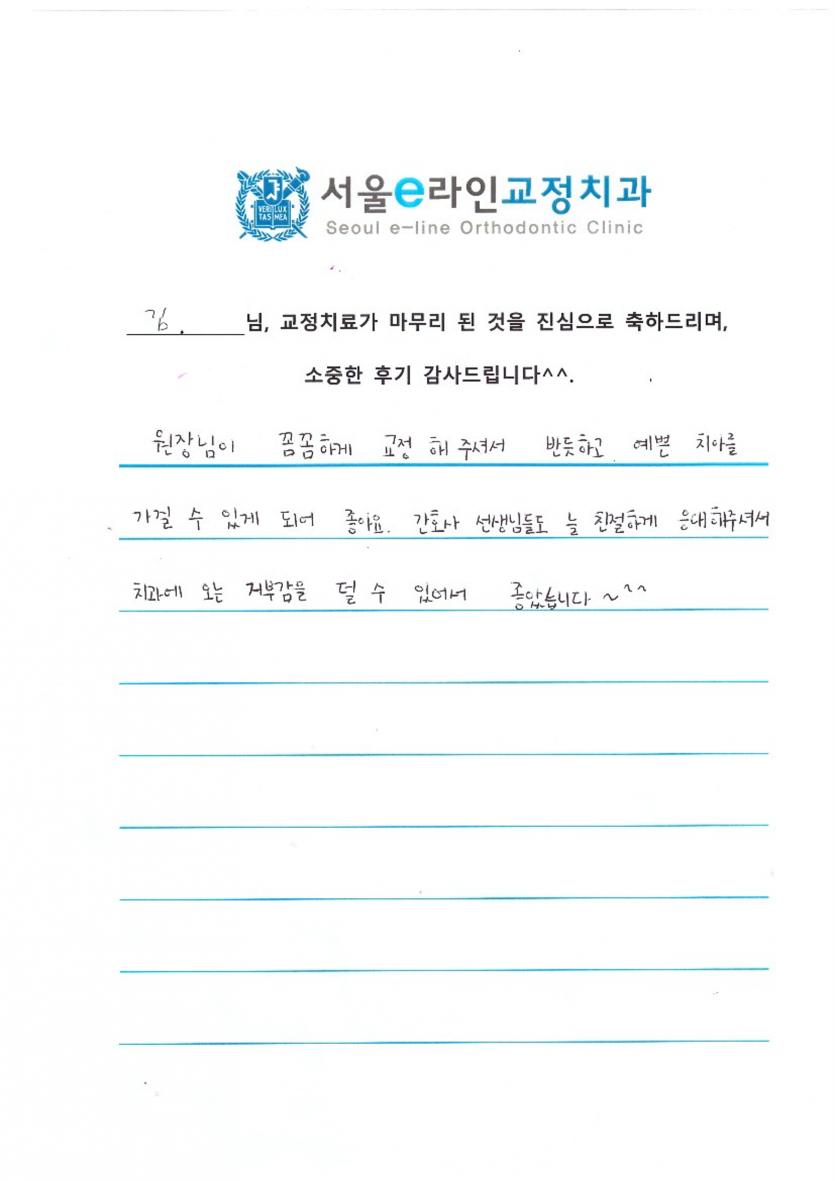 VERI LUX
TAS MEA
서울e라인교정치과
Seoul e-line Orthodontic Clinic
김. 님, 교정치료가 마무리 된 것을 진심으로 축하드리며,
소중한 후기 감사드립니다^^.
원장님이 꼼꼼하게 교정 해 주셔서 반듯하고 예쁜 치아를
가질 수 있게 되어 좋아요. 간호사 선생님들도 늘 친절하게 응대해주셔서
치과에 오는 거부감을 덜 수 있어서 좋았습니다 ~^^